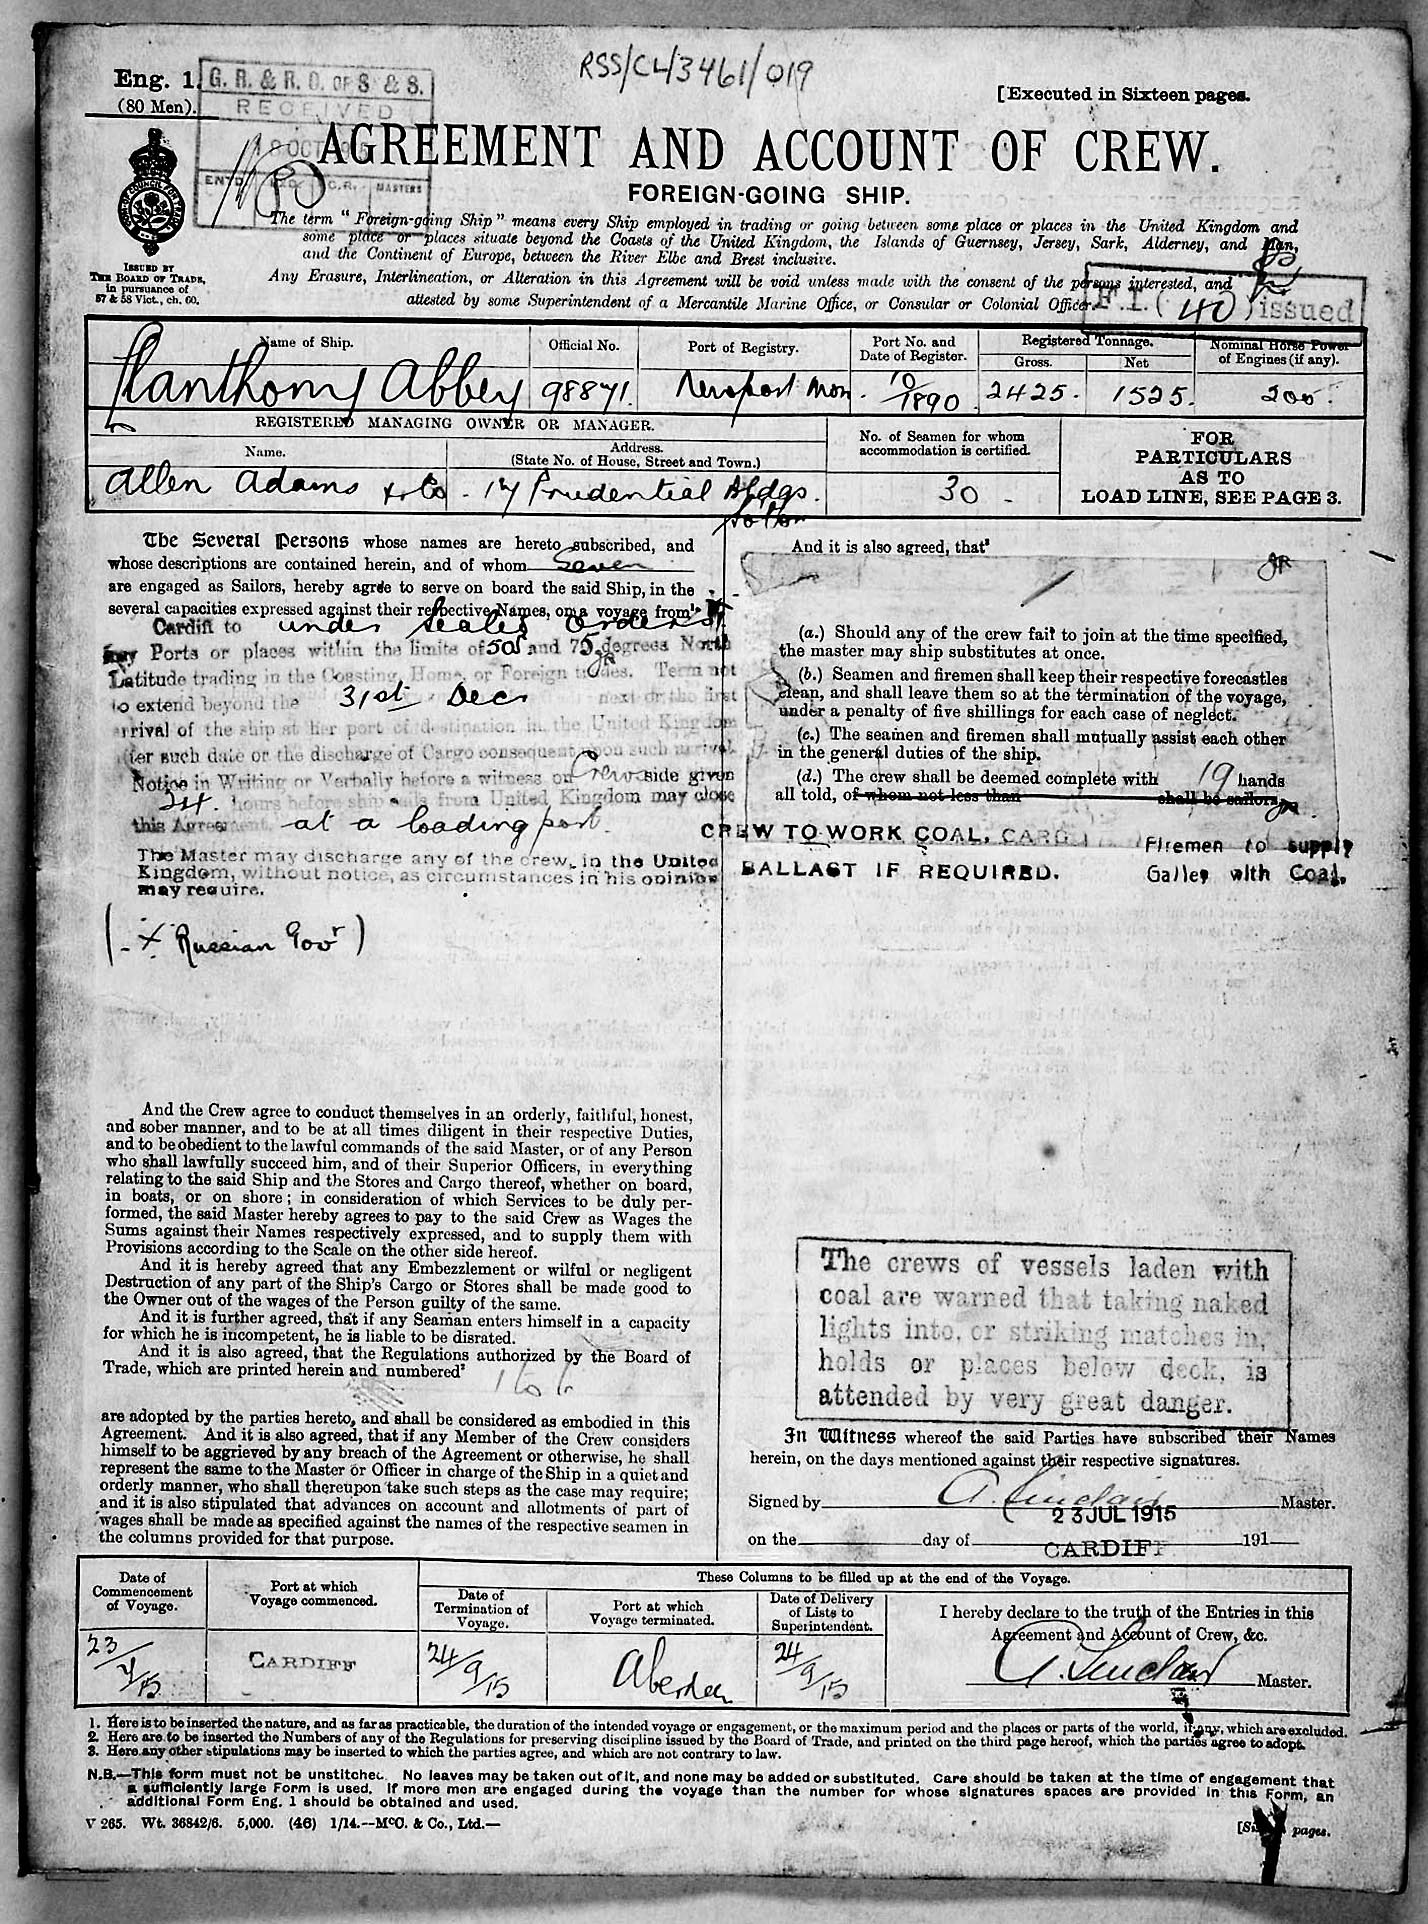 RSS/CL/3461/019
Eng. 1.
(80 Men).
G. R. & R. O. OF S & S.
RECEIVED
18 OCT
ENTD. C.R. MASTERS
[Executed in Sixteen pages.
AGREEMENT AND ACCOUNT OF CREW.
FOREIGN-GOING SHIP.
ISSUED BY
THE BOARD OF TRADE,
in pursuance of
57 & 58 Vict., ch. 60.
The term "Foreign-going Ship" means every Ship employed in trading or going between some place or places in the United Kingdom and
some place or places situate beyond the Coasts of the United Kingdom, the Islands of Guernsey, Jersey, Sark, Alderney, and Man,
and the Continent of Europe, between the River Elbe and Brest inclusive.
Any Erasure, Interlineation, or Alteration in this Agreement will be void unless made with the consent of the persons interested, and
attested by some Superintendent of a Mercantile Marine Office, or Consular or Colonial Officer.
F.I. (40) issued
Name of Ship.
Official No.
Port of Registry.
Port No. and
Date of Register.
Registered Tonnage.
Gross.
Net
Nominal Horse Power
of Engines (if any).
Llanthony Abbey
98871.
Newport Mon.
10/1890
2425.
1525.
200.
REGISTERED MANAGING OWNER OR MANAGER.
Name.
Address.
(State No. of House, Street and Town.)
No. of Seamen for whom
accommodation is certified.
FOR
PARTICULARS
AS TO
LOAD LINE, SEE PAGE 3.
Allen Adams & Co. 17 Prudential Bldgs.
30
The Several Persons whose names are hereto subscribed, and
whose descriptions are contained herein, and of whom Seven
are engaged as Sailors, hereby agree to serve on board the said Ship, in the
several capacities expressed against their respective Names, on a voyage from¹
Cardiff to under sealed orders
any Ports or places within the limits of 50 and 75 degrees North
Latitude trading in the Coasting, Home, or Foreign trades. Term not
to extend beyond the 31st Decr next or the first
arrival of the ship at her port of destination in the United Kingdom
after such date or the discharge of Cargo consequent upon such arrival.
Notice in Writing or Verbally before a witness on Crews side given
24. hours before ship sails from United Kingdom may close
this Agreement. at a loading port.
The Master may discharge any of the crew, in the United
Kingdom, without notice, as circumstances in his opinion
may require.
(- X Russian Govt)
And the Crew agree to conduct themselves in an orderly, faithful, honest,
and sober manner, and to be at all times diligent in their respective Duties,
and to be obedient to the lawful commands of the said Master, or of any Person
who shall lawfully succeed him, and of their Superior Officers, in everything
relating to the said Ship and the Stores and Cargo thereof, whether on board,
in boats, or on shore; in consideration of which Services to be duly per-
formed, the said Master hereby agrees to pay to the said Crew as Wages the
Sums against their Names respectively expressed, and to supply them with
Provisions according to the Scale on the other side hereof.
And it is hereby agreed that any Embezzlement or wilful or negligent
Destruction of any part of the Ship's Cargo or Stores shall be made good to
the Owner out of the wages of the Person guilty of the same.
And it is further agreed, that if any Seaman enters himself in a capacity
for which he is incompetent, he is liable to be disrated.
And it is also agreed, that the Regulations authorized by the Board of
Trade, which are printed herein and numbered²
1 to 6
are adopted by the parties hereto, and shall be considered as embodied in this
Agreement. And it is also agreed, that if any Member of the Crew considers
himself to be aggrieved by any breach of the Agreement or otherwise, he shall
represent the same to the Master or Officer in charge of the Ship in a quiet and
orderly manner, who shall thereupon take such steps as the case may require;
and it is also stipulated that advances on account and allotments of part of
wages shall be made as specified against the names of the respective seamen in
the columns provided for that purpose.
And it is also agreed, that³
(a.) Should any of the crew fail to join at the time specified,
the master may ship substitutes at once.
(b.) Seamen and firemen shall keep their respective forecastles
clean, and shall leave them so at the termination of the voyage,
under a penalty of five shillings for each case of neglect.
(c.) The seamen and firemen shall mutually assist each other
in the general duties of the ship.
(d.) The crew shall be deemed complete with 19 hands
all told, of whom not less than shall be sailors.
CREW TO WORK COAL, CARGO
BALLAST IF REQUIRED.
Firemen to supply
Galley with Coal.
The crews of vessels laden with
coal are warned that taking naked
lights into, or striking matches in,
holds or places below deck, is
attended by very great danger.
In Witness whereof the said Parties have subscribed their Names
herein, on the days mentioned against their respective signatures.
Signed by A. Sinclair Master.
23 JUL 1915
on the day of 191
CARDIFF
Date of
Commencement
of Voyage.
Port at which
Voyage commenced.
These Columns to be filled up at the end of the Voyage.
Date of
Termination of
Voyage.
Port at which
Voyage terminated.
Date of Delivery
of Lists to
Superintendent.
I hereby declare to the truth of the Entries in this
Agreement and Account of Crew, &c.
23/7/15
CARDIFF
24/9/15
Aberdeen
24/9/15
A. Sinclair Master.
1. Here is to be inserted the nature, and as far as practicable, the duration of the intended voyage or engagement, or the maximum period and the places or parts of the world, if any, which are excluded.
2. Here are to be inserted the Numbers of any of the Regulations for preserving discipline issued by the Board of Trade, and printed on the third page hereof, which the parties agree to adopt.
3. Here any other stipulations may be inserted to which the parties agree, and which are not contrary to law.
N.B.—This form must not be unstitched. No leaves may be taken out of it, and none may be added or substituted. Care should be taken at the time of engagement that
a sufficiently large Form is used. If more men are engaged during the voyage than the number for whose signatures spaces are provided in this Form, an
additional Form Eng. 1 should be obtained and used.
V 265. Wt. 36842/6. 5,000. (46) 1/14.—McC. & Co., Ltd.—
pages.